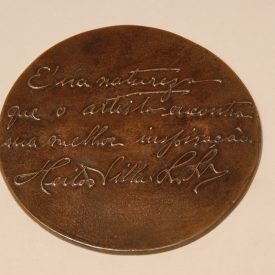 É na natureza
que o artista encontra
sua melhor inspiração.
Heitor Villa-Lobos